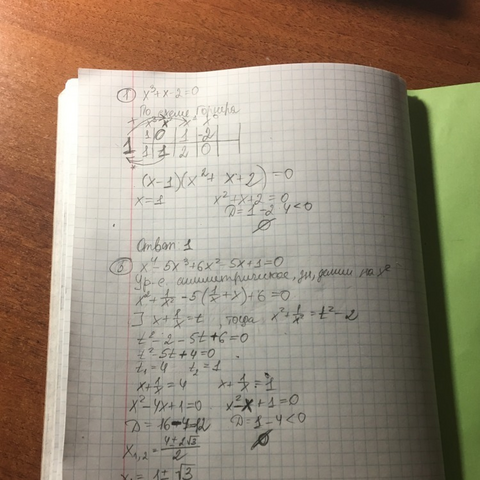 ① x³+x-2=0
По схеме Горнера
x³ x² x¹ x⁰
1 0 1 -2
1 1 1 2 0
(x-1)(x²+x+2)=0
x=1 x²+x+2=0
D=1-2·4<0
∅
Ответ: 1
⑤ x⁴-5x³+6x²-5x+1=0
Ур-е симметрическое, зн, делим на x²
x²+1/x²-5(1/x+x)+6=0
] x+1/x=t, тогда x²+1/x²=t²-2
t²-2-5t+6=0
t²-5t+4=0
t₁=4 t₂=1
x+1/x=4 x+1/x=1
x²-4x+1=0 x²-x+1=0
D=16-4=12 D=1-4<0
∅
x₁,₂=(4±2√3)/2